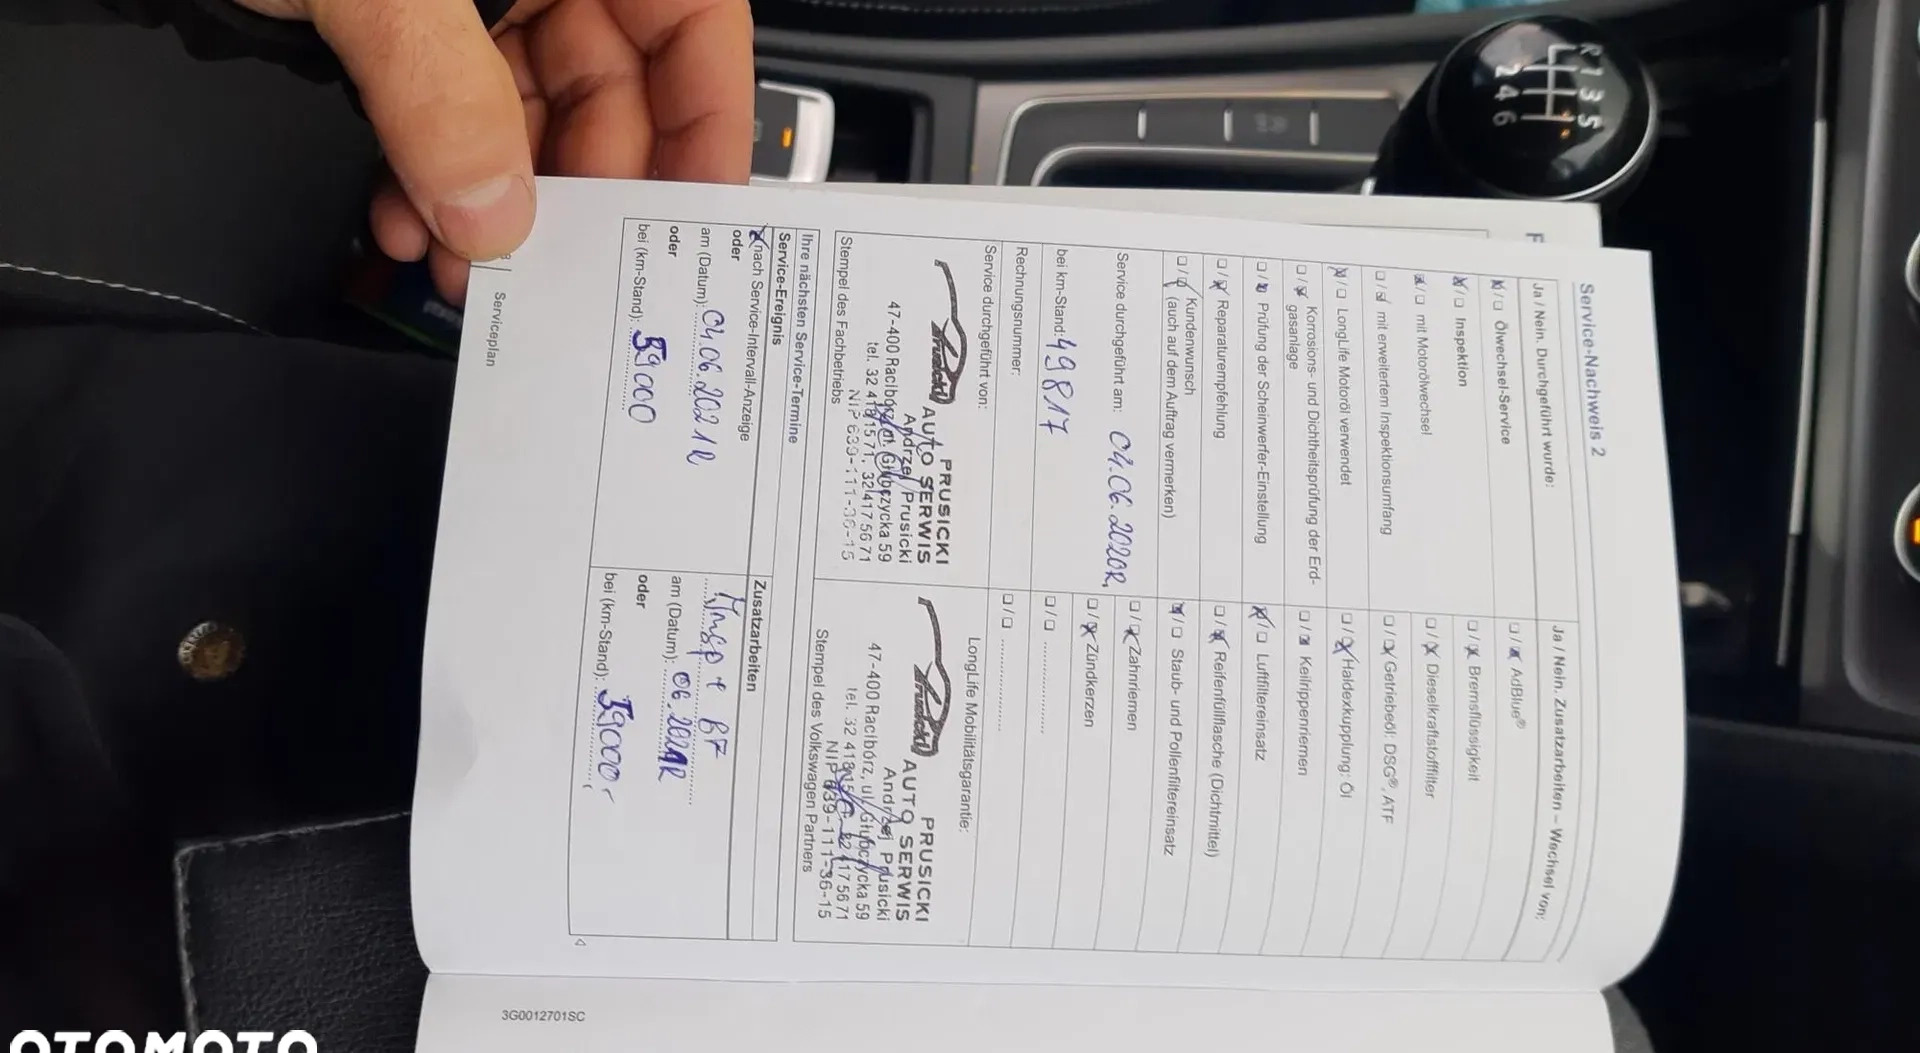 Service-Nachweis 2
Ja / Nein. Durchgeführt wurde:
Ölwechsel-Service
Inspektion
mit Motorölwechsel
mit erweitertem Inspektionsumfang
LongLife Motoröl verwendet
Korrosions- und Dichtheitsprüfung der Erd-
gasanlage
Prüfung der Scheinwerfer-Einstellung
Reparaturempfehlung
Kundenwunsch
(auch auf dem Auftrag vermerken)
Service durchgeführt am: 04.06.2020R
bei km-Stand: 49817
Rechnungsnummer:
Service durchgeführt von:
Prusicki
PRUSICKI
AUTO SERWIS
Andrzej Prusicki
47-400 Racibórz, ul. Głubczycka 59
tel. 32 4181571, 32 4175671
NIP 639-111-36-15
Stempel des Fachbetriebs
Ja / Nein. Zusatzarbeiten – Wechsel von:
AdBlue®
Bremsflüssigkeit
Dieselkraftstofffilter
Getriebeöl: DSG®, ATF
Haldexkupplung: Öl
Keilrippenriemen
Luftfiltereinsatz
Reifenfüllflasche (Dichtmittel)
Staub- und Pollenfiltereinsatz
Zahnriemen
Zündkerzen
LongLife Mobilitätsgarantie:
Prusicki
PRUSICKI
AUTO SERWIS
Andrzej Prusicki
47-400 Racibórz, ul. Głubczycka 59
tel. 32 4181571, 32 4175671
NIP 639-111-36-15
Stempel des Volkswagen Partners
Ihre nächsten Service-Termine
Service-Ereignis
nach Service-Intervall-Anzeige
oder
am (Datum): 04.06.2021R
oder
bei (km-Stand): 59000
Zusatzarbeiten
Insp + BF
am (Datum): 06.2021R
oder
bei (km-Stand): 59000
Serviceplan
3G0012701SC
R 1 3 5
2 4 6
OTOMOTO